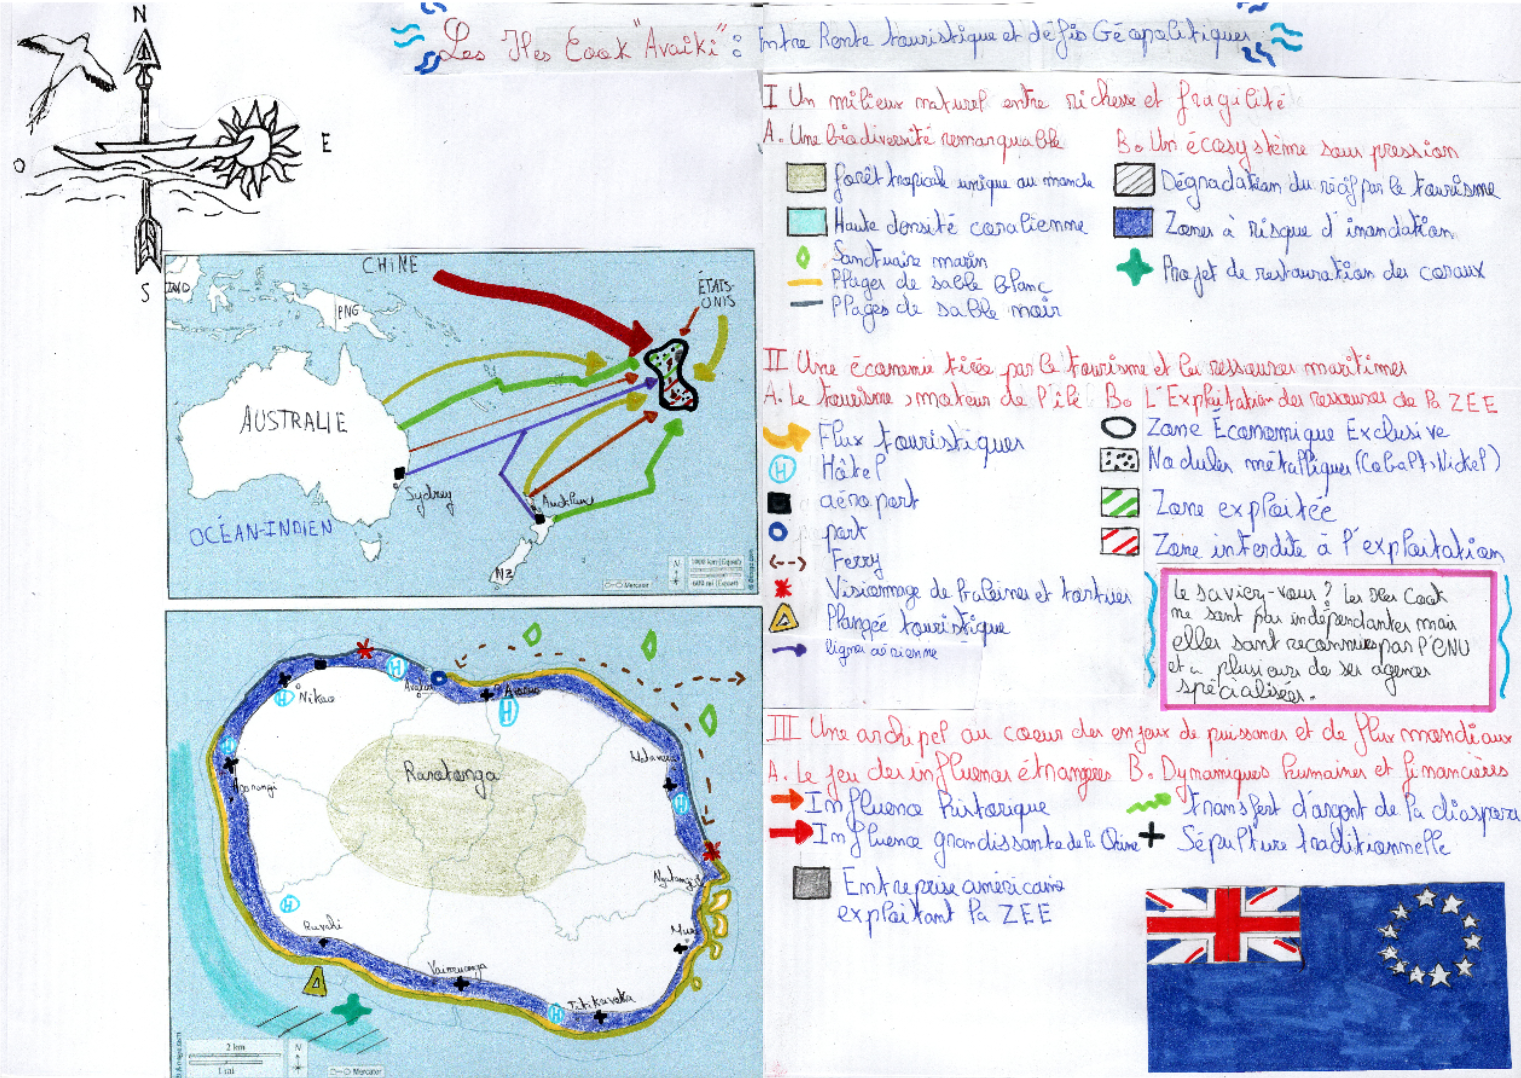 Les Iles Cook "Avaiki" : Entre Rente touristique et défis Géopolitiques
N
E
O
S
CHINE
ÉTATS-
UNIS
IND
PNG
AUSTRALIE
Sydney
Auckland
OCÉAN-INDIEN
NZ
N
1000 km (Équat)
600 mi (Équat)
Mercator
Nikao
Avarua
Rarotonga
Matavera
Ngatangiia
Muri
Vaimaanga
Titikaveka
2 km
1 mi
N
Mercator
I Un milieu naturel entre richesse et fragilité
A. Une biodiversité remarquable
forêt tropicale unique au monde
Haute densité coralienne
Sanctuaire marin
Plages de sable blanc
Plages de sable noir
B. Un écosystème sous pression
Dégradation du récif par le tourisme
Zones à risque d'inondation
Projet de restauration des coraux
II Une économie tirée par le tourisme et les ressources maritimes
A. Le tourisme, moteur de l'île
Flux touristiques
Hôtel
aéroport
port
Ferry
Visionnage de baleines et tortues
Plongée touristique
lignes aérienne
B. L'Exploitation des ressources de la ZEE
Zone Économique Exclusive
Nodules métalliques (Cobalt, Nickel)
Zone exploitée
Zone interdite à l'exploitation
Le saviez-vous ? Les Iles Cook
ne sont pas indépendantes mais
elles sont reconnues par l'ONU
et à plusieurs de ses agences
spécialisées.
III Une archipel au coeur des enjeux de puissances et de flux mondiaux
A. Le jeu des influences étrangères
Influence historique
Influence grandissante de la Chine
Entreprise américaine
exploitant la ZEE
B. Dynamiques humaines et financières
transfert d'argent de la diaspora
Sépulture traditionnelle